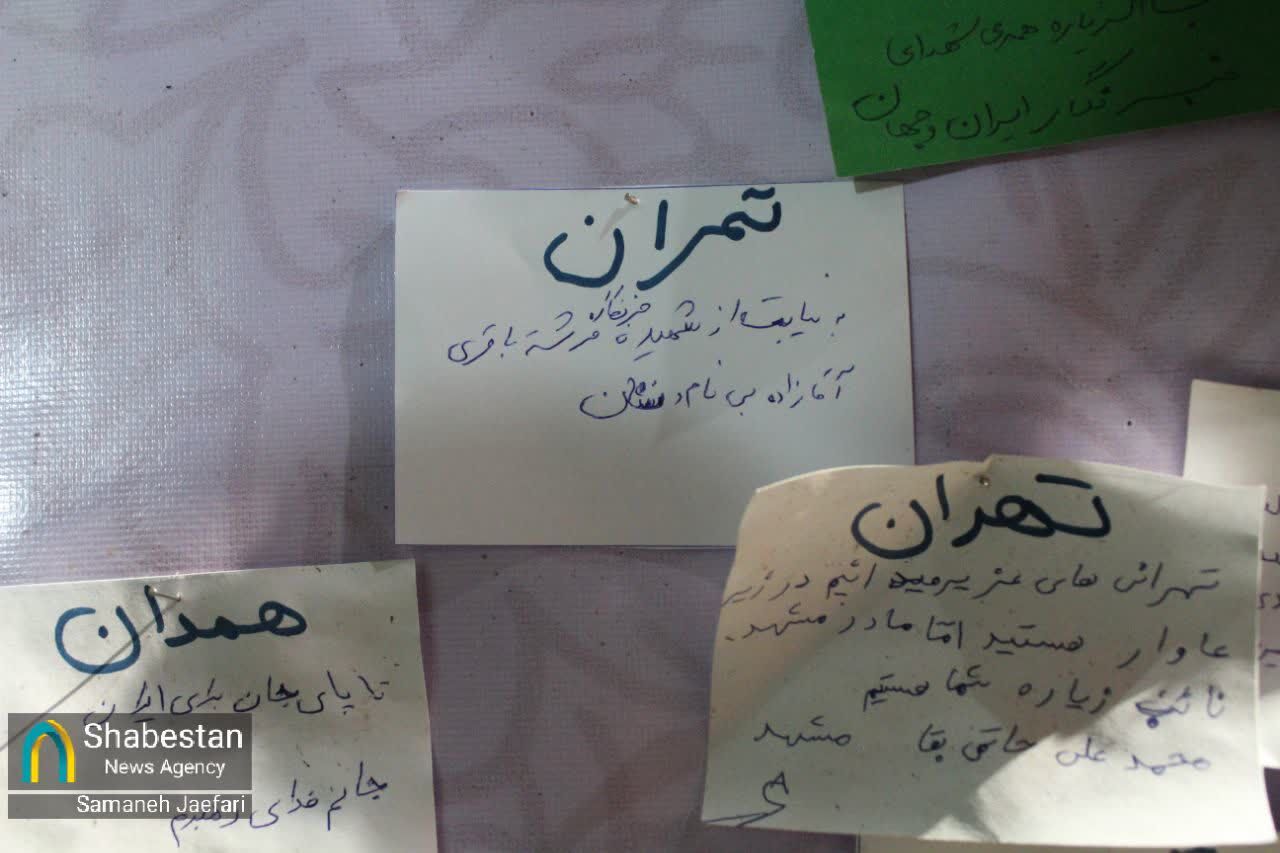 نائب الزیاره همه‌ی شهدای
خبرنگار ایران و جهان
تهران
به نیابت از شهیده خبرنگار فرشته باقری
آقازاده بی نام و نشان
تهران
تهرانی های عزیر میدانیم در زیر
عاوار هستید امّا ما در مشهد.
نائب زیاره شما هستیم
محمد علی بقا مشهد
همدان
تا پای جان برای ایران
جانم فدای رهبرم
Shabestan
News Agency
Samaneh Jaefari